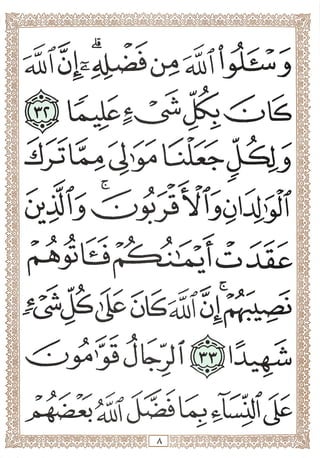 وَسْـَٔلُوا۟ ٱللَّهَ مِن فَضْلِهِۦٓ ۗ إِنَّ ٱللَّهَ
كَانَ بِكُلِّ شَىْءٍ عَلِيمًا ٣٢
وَلِكُلٍّ جَعَلْنَا مَوَٰلِىَ مِمَّا تَرَكَ
ٱلْوَٰلِدَانِ وَٱلْأَقْرَبُونَ ۚ وَٱلَّذِينَ
عَقَدَتْ أَيْمَٰنُكُمْ فَـَٔاتُوهُمْ
نَصِيبَهُمْ ۚ إِنَّ ٱللَّهَ كَانَ عَلَىٰ كُلِّ شَىْءٍ
شَهِيدًا ٣٣ ٱلرِّجَالُ قَوَّٰمُونَ
عَلَى ٱلنِّسَآءِ بِمَا فَضَّلَ ٱللَّهُ بَعْضَهُمْ
٨